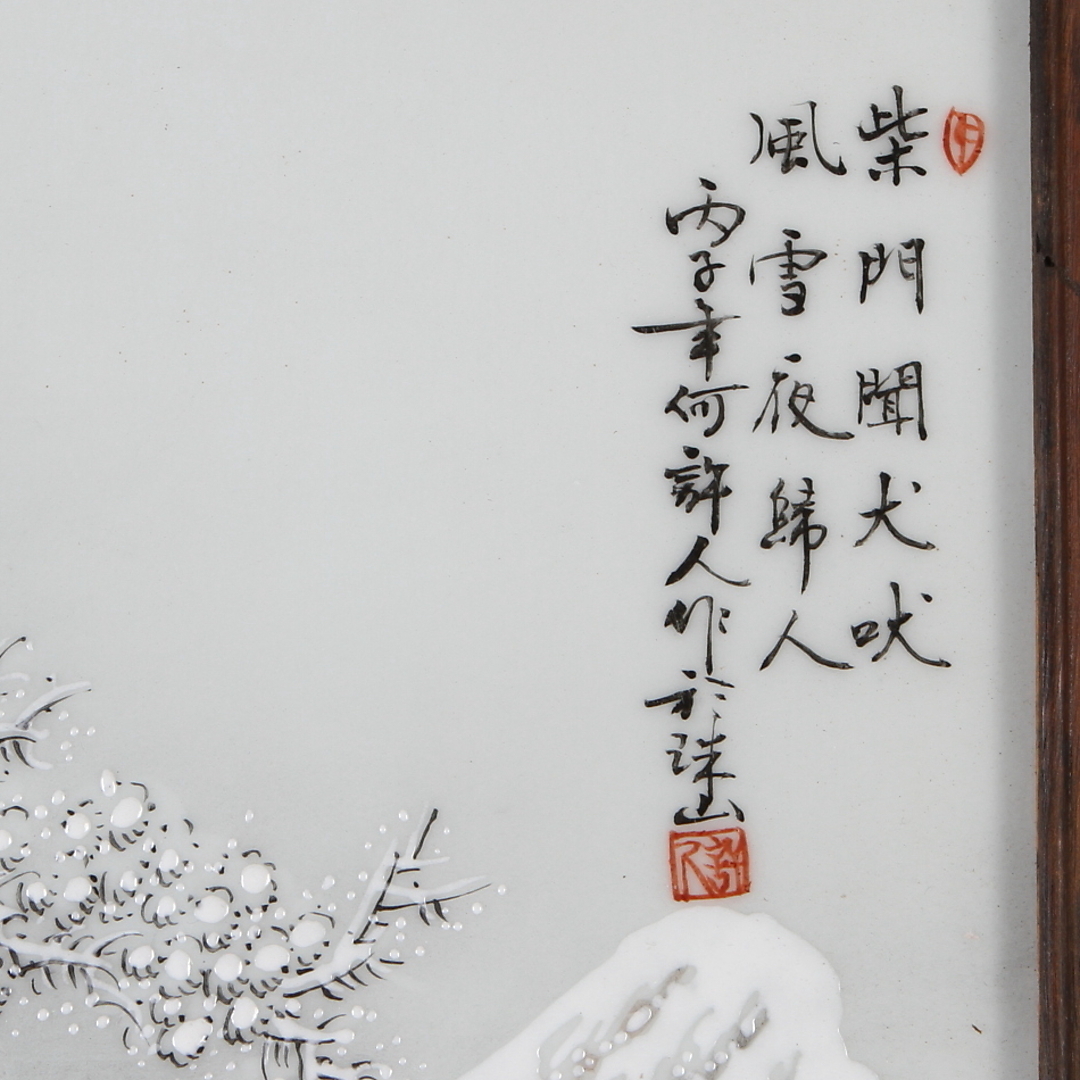 柴門聞犬吠
風雪夜歸人
丙子年何許人作於珠山
許人